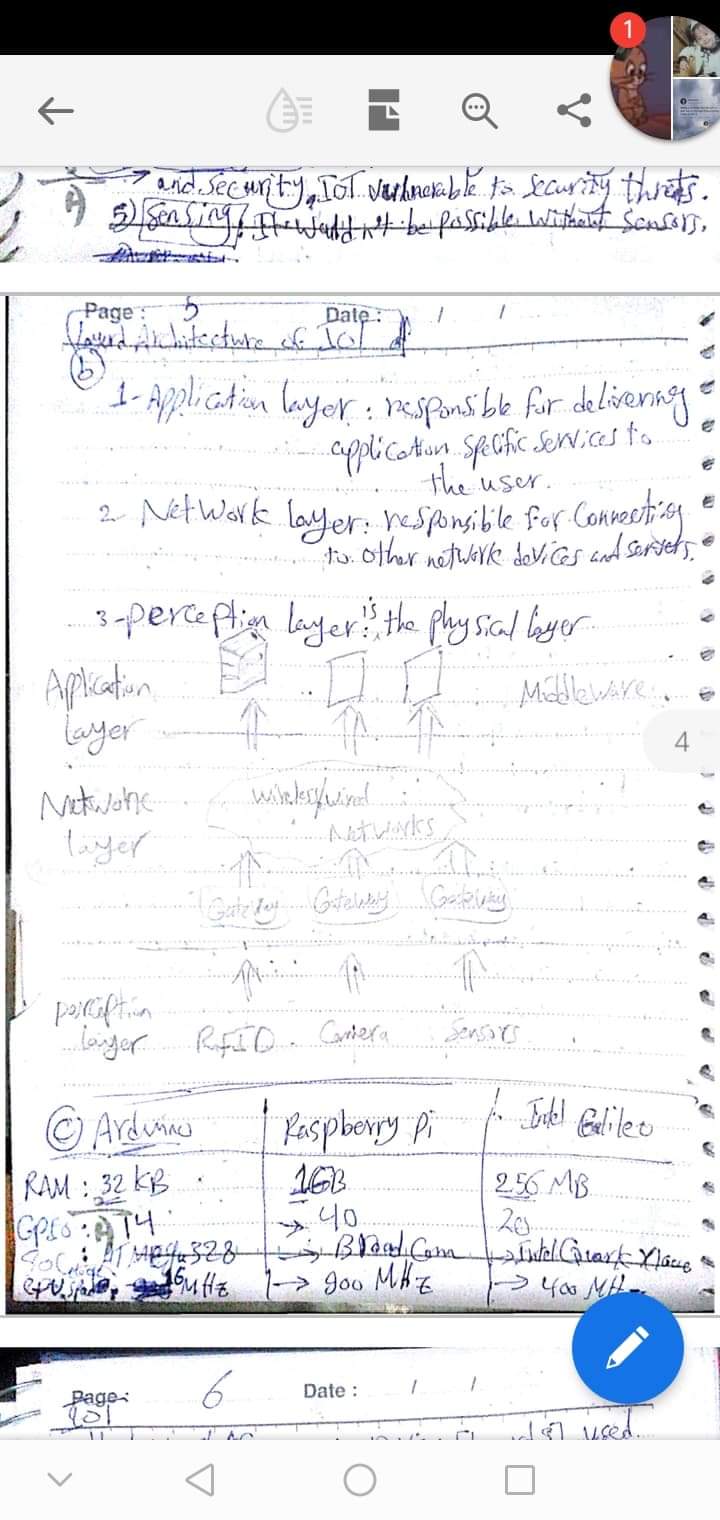 1
and security, IoT vulnerable to security threts.
5) Sensing: It wouldn't be possible without sensors.
Page: 5 Date: / /
Layerd Architecture of IOT
(b)
1-Application layer: responsible for delivering
application specific services to
the user.
2- Network layer: responsible for connecting
to other network devices and servers.
3-perception layer: is the physical layer
Application Middleware
layer
4
Network wireless/wired
layer Networks
Gateway Gateway Gateway
perception
layer RFID Camera Sensors
(C) Arduino Raspberry Pi Intel Galileo
RAM: 32 KB 1GB 256 MB
GPIO: 14 → 40 20
SoC: ATMega328 → BroadCom → Intel Quark X1000
CPU 16 MHz → 900 MHz → 400 MH
Page: 6 Date: / /
used.